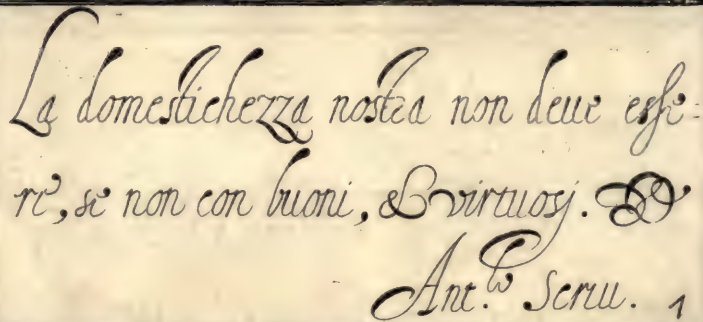 La domestichezza nostra non deue esse-
re, se non con buoni, & virtuosj.
Ant.º Scriu. 1